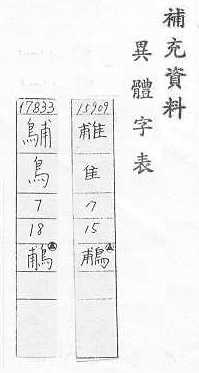 補充資料
異體字表
15909
隹
7
15
鵏
17833
鳥
7
18
鵏